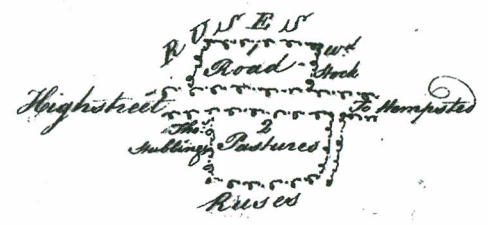 RUSES
1
Road
Wd
Stock
Highstreet
To Hempsted
Tho.s
Stubbings
2
Pastures
Ruses